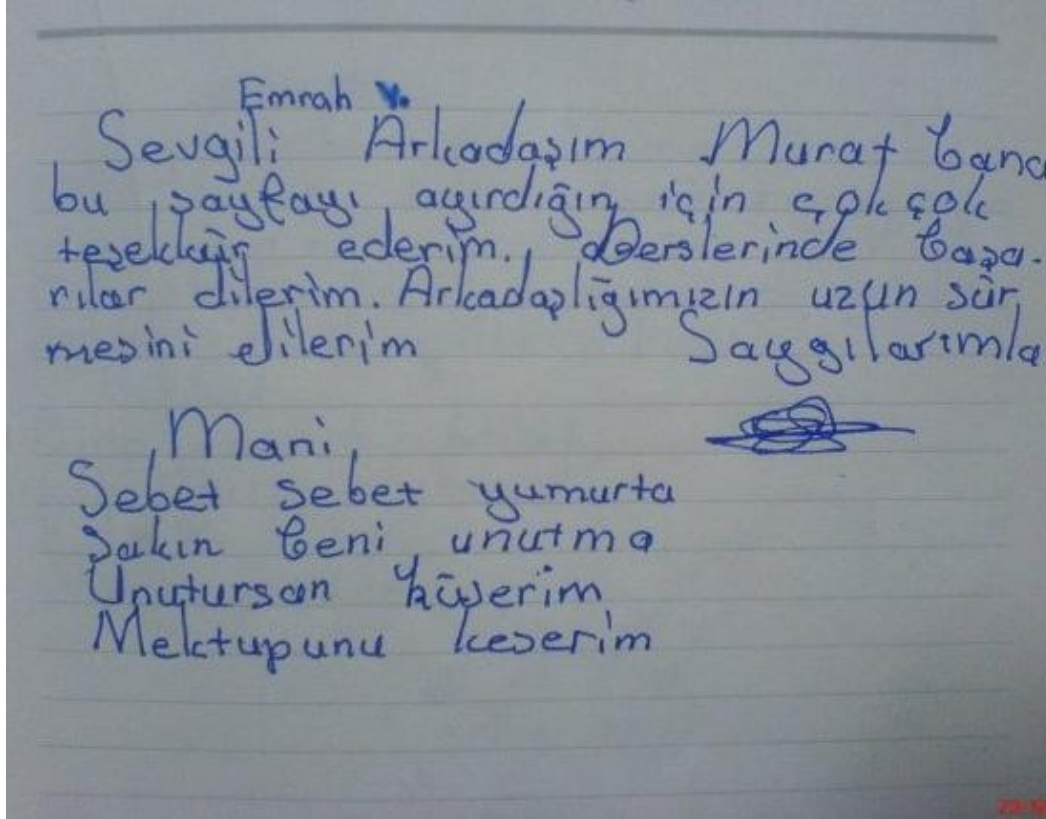 Emrah Y.
Sevgili Arkadaşım Murat bana
bu sayfayı ayırdığın için çok çok
teşekkür ederim. Derslerinde başa-
rılar dilerim. Arkadaşlığımızın uzun sür
mesini dilerim Saygılarımla
Mani
Sebet sebet yumurta
Sakın beni unutma
Unutursan küserim
Mektupunu keserim